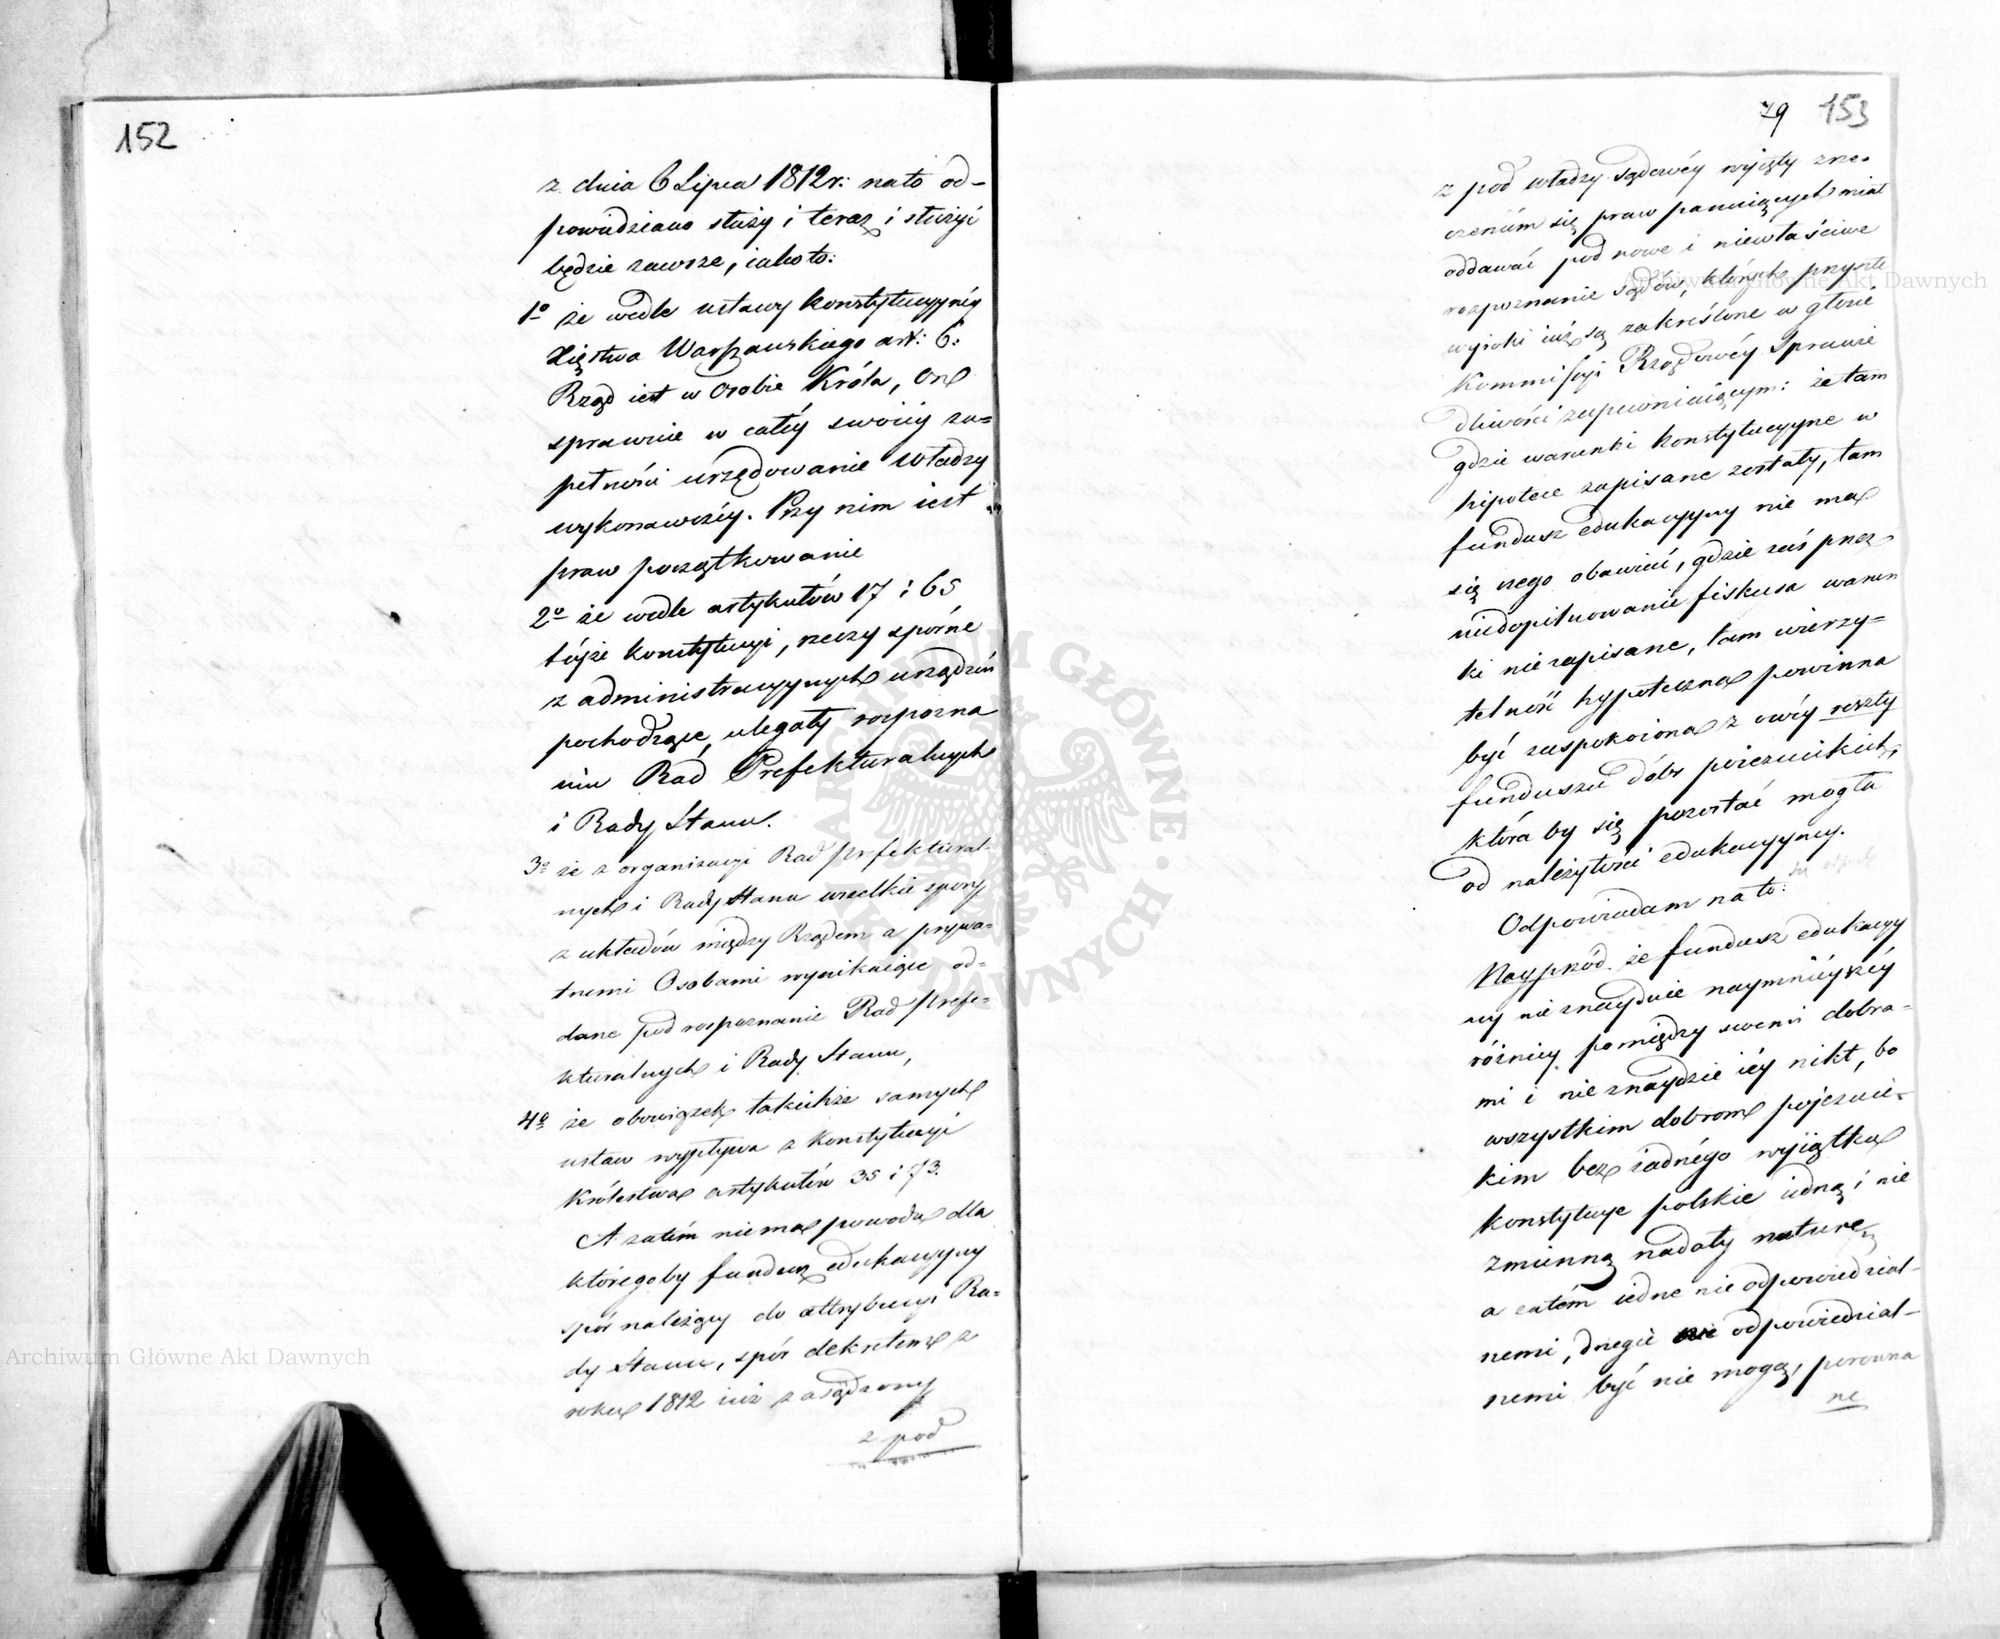 152
z dnia 6 Lipca 1812r: na to od-
powiedziano służy i teraz i służyć
będzie zawsze, iako to:
1º że wedle ustawy konstytucyynéy
Xięstwa Warszawskiego art: 6.
Rząd iest w osobie Króla, On
sprawuie w całéy swoiéy zu-
pełności urzędowanie władzy
wykonawczéy. Przy nim iest
praw początkowanie
2º że wedle artykułów 17 i 65
téyże konstytucyi, rzeczy sporne
z administracyynych urządzeń
pochodzące, ulegały rozpozna
niu Rad Prefekturalnych
i Rady Stanu.
3º że z organizacyi Rad prefektural-
nych i Rady Stanu wszelkie spory
z układów między Rządem a prywa-
tnemi Osobami wynikaiące od-
dane pod rozpoznanie Rad prefe-
kturalnych i Rady Stanu,
4º że obowiązek takichże samych
ustaw wypływa z Konstytucyi
Królestwa artykułów 35 i 73.
A zatém niema powodu dla
któregoby fundusz edukacyyny
spór należący do attrybucyi Ra-
dy Stanu, spór dekretem z
roku 1812 iuż zasądzony
z pod
79 153
z pod władzy sądowéy wyięty zne-
czeniem się praw panuiących miał
oddawać pod nowe i niewłaściwe
rozpoznanie sądów, których przyszłe
wyroki iuż są zakreślone w głosie
Kommissyi Rządowéy Sprawie
dliwości zapewniaiącym: że tam
gdzie warunki konstytucyyne w
hipotece zapisane zostały, tam
fundusz edukacyyny nie ma
się czego obawiać, gdzie zaś przez
niedopilnowanie fiskusa warun
ki nie zapisane, tam wierzy-
telność hypoteczna powinna
być zaspokoiona z owéy reszty
funduszu dóbr poiezuickich,
któraby się pozostać mogła
od należytości edukacyyney.
Odpowiadam na to:
Nayprzód że fundusz edukacyy
ny nie znayduie naymnieyszéy
różnicy pomiędzy swemi dobra-
mi i nie znaydzie iéy nikt, bo
wszystkim dobrom pojezuic-
kim bez żadnégo wyiątku
konstytucye polskie iedną i nie
zmienną nadały naturę,
a zatém iedne nie odpowiedzial-
nemi, drugie odpowiedzial-
nemi być nie mogą, porówna
ne
Archiwum Główne Akt Dawnych
Archiwum Główne Akt Dawnych
ARCHIWUM GŁÓWNE · AKT DAWNYCH ·